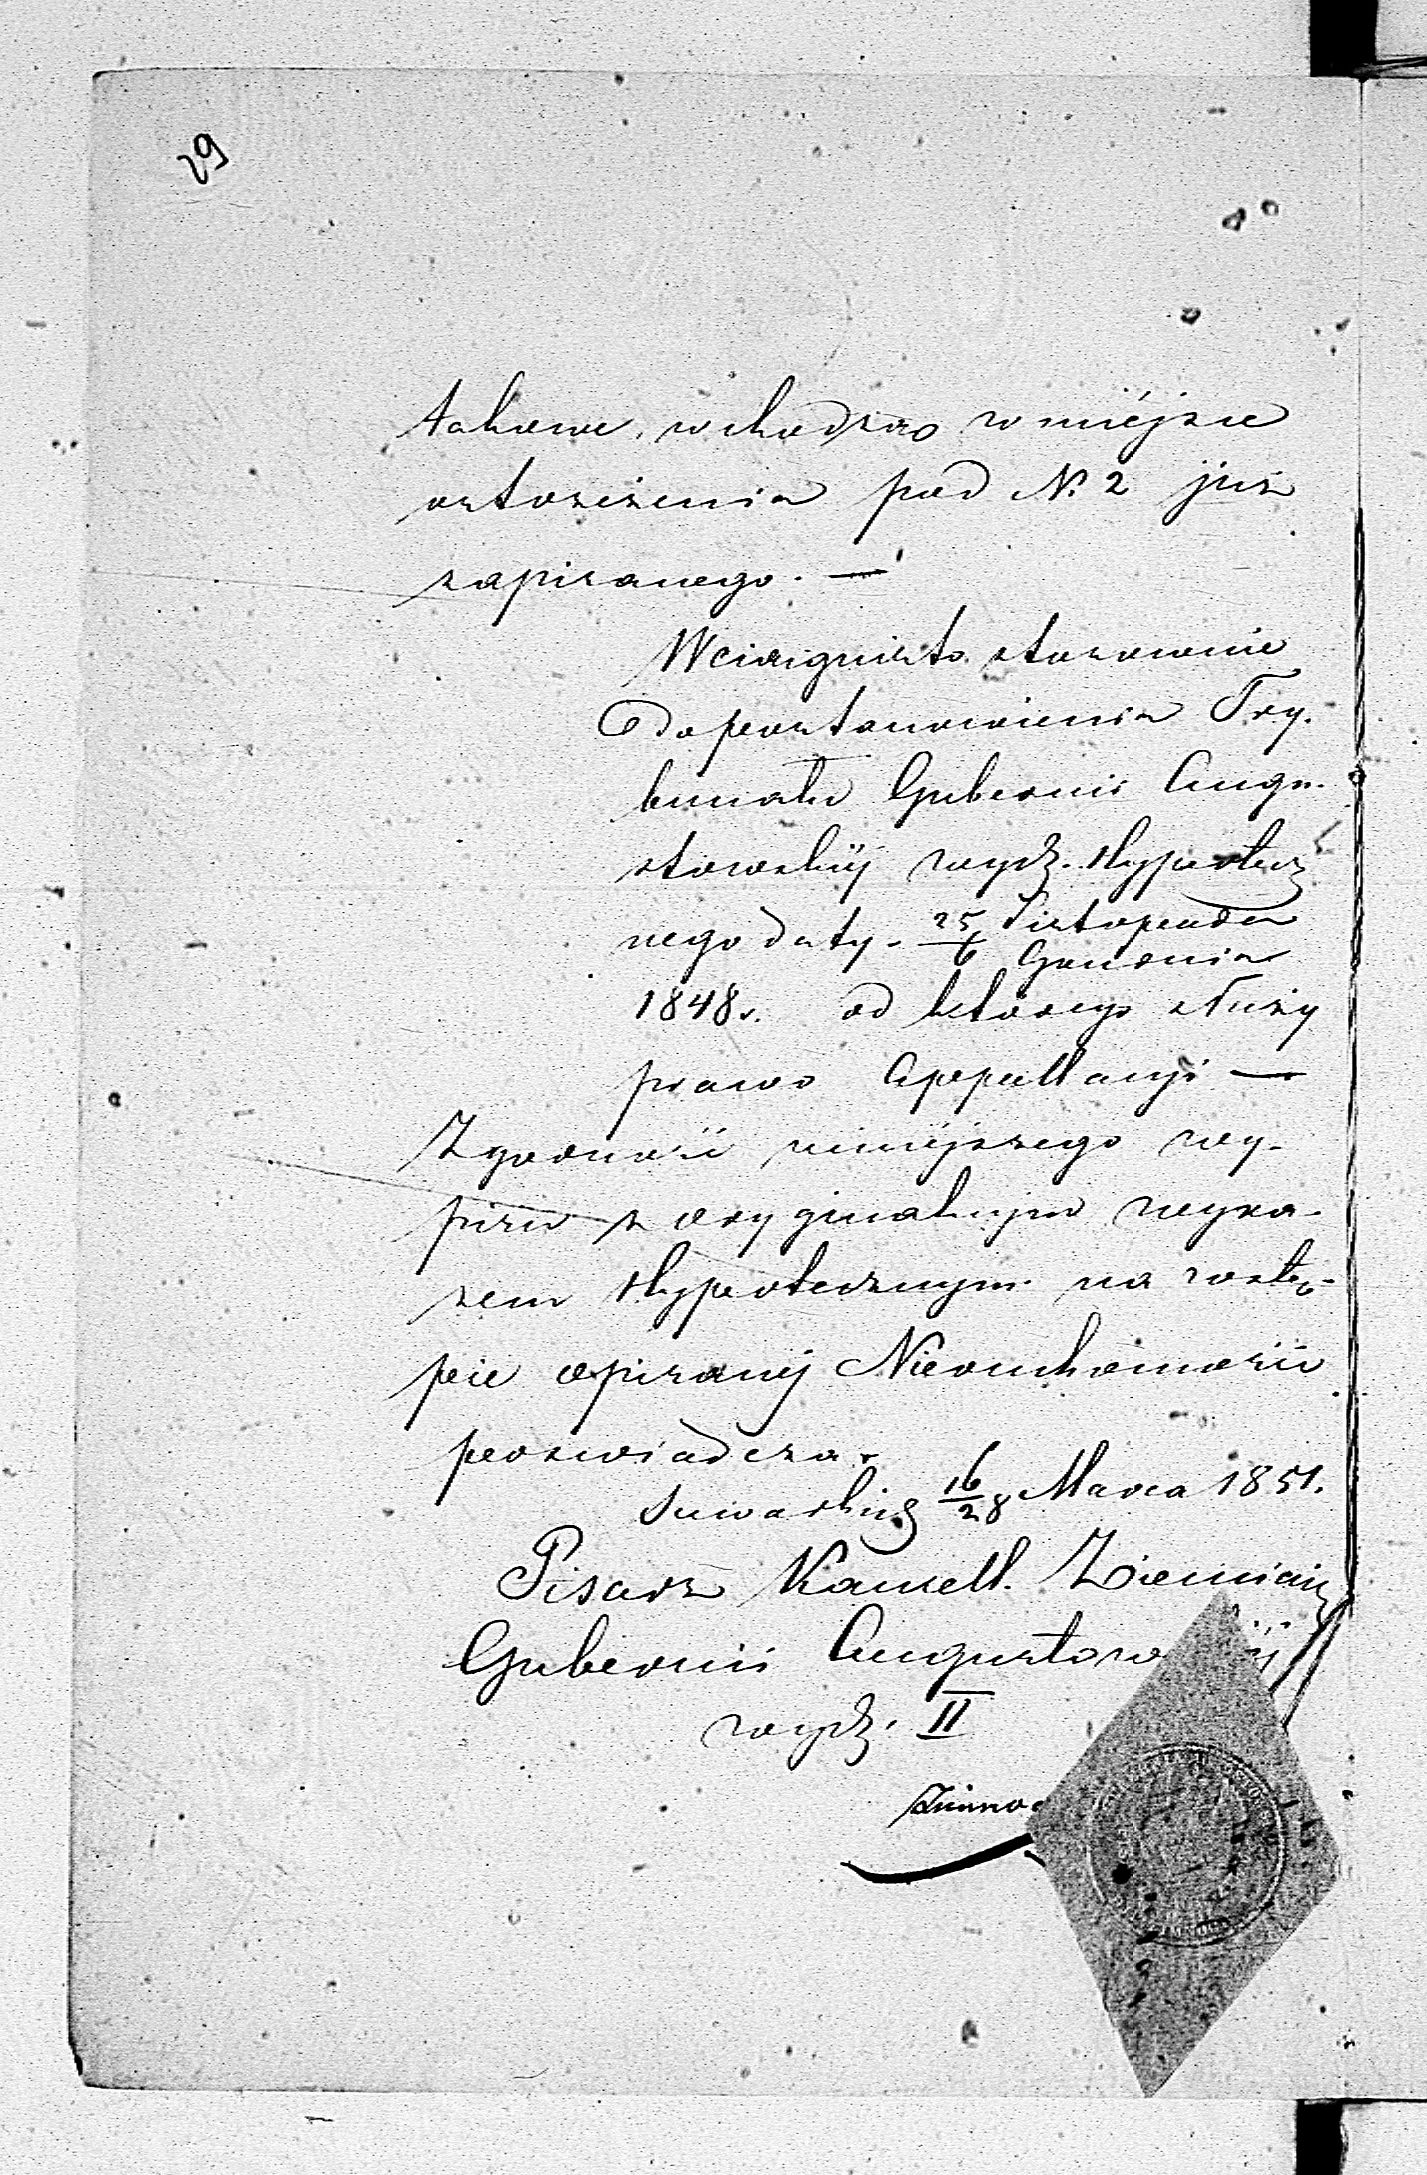 29
takowe, wchodząc w miéjsce
ostrzeżenia pod N. 2 już
zapisanego. —
Wciągnięto stosownie
do postanowienia Try-
bunału Gubernii Augu-
stowskiéj wydz. Hypotecz
nego daty. 25/6 Listopada/Grudnia
1848 r. od którego służy
prawo Appellacyi —
Zgodność niniéjszego wy-
pisu z oryginalnym wyka-
zem Hypotecznym na wstę-
pie opisanéj Nieruchomości
poswiadcza.
Suwałki 16/28 Marca 1851.
Pisarz Kancell. Ziemiań
Gubernii Augustow
wydz. II